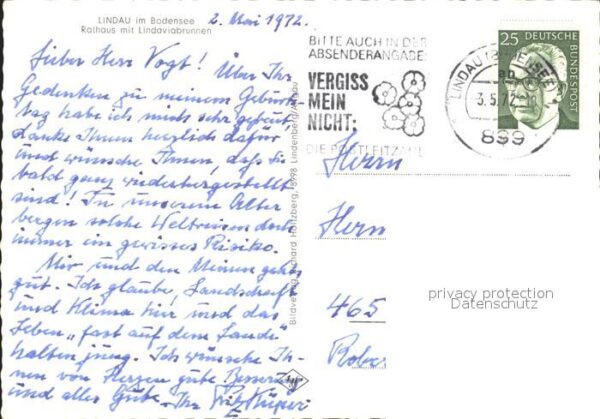 LINDAU im Bodensee
Rathaus mit Lindaviabrunnen
2. Mai 1972.
Lieber Herr Vogt! Über Ihr
Gedenken zu meinem Geburts-
tag habe ich mich sehr gefreut,
danke Ihnen herzlich dafür
und wünsche Ihnen, daß Sie
bald ganz wiederhergestellt
sind! In unserem Alter
bergen solche Weltreisen doch
immer ein gewisses Risiko.
Mir und den Meinen geht es
gut. Ich glaube, Landschaft
und Klima hier und das
Leben "fast auf dem Lande"
halten jung. Ich wünsche Ih-
nen von Herzen gute Besserung
und alles Gute. Ihr Fritz Küper
Bildverlag Richard Holzberg, 8998 Lindenberg/Allgäu
BITTE AUCH IN DER
ABSENDERANGABE:
VERGISS
MEIN
NICHT:
DIE POSTLEITZAHL
LINDAU (BODENSEE)
ab
3.5.72
899
25 DEUTSCHE
BUNDESPOST
Herrn
Herrn
465
privacy protection
Datenschutz